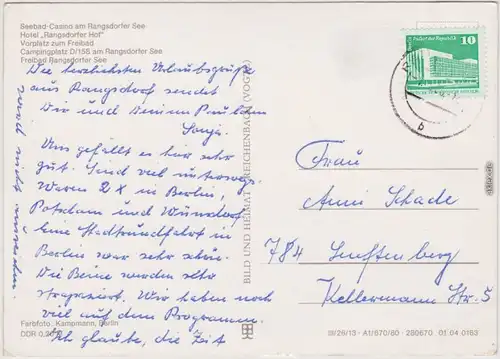 Seebad-Casino am Rangsdorfer See
Hotel „Rangsdorfer Hof"
Vorplatz zum Freibad
Campingplatz D/158 am Rangsdorfer See
Freibad Rangsdorfer See
Die herzlichsten Urlaubsgrüße
aus Rangsdorf sendet
Dir und Deinem Paulchen
Sonja.
Uns gefällt es hier sehr
gut. Sind viel unterwegs.
Waren 2 X in Berlin,
Potsdam und Wünsdorf
Eine Stadtrundfahrt in
Berlin war sehr schön.
Die Beine werden sehr
strapaziert. Wir haben noch
viel auf dem Programm.
Ich glaube, die Zeit
wird nicht ausreichen.
Farbfoto: Kampmann, Berlin
DDR
BILD UND HEIMAT REICHENBACH (VOGTL)
10
Palast der Republik
Frau
Anni Schade
784 Senftenberg
Kellermann Str. 5
III/26/13 · A1/670/80 · 280670 01 04 0163